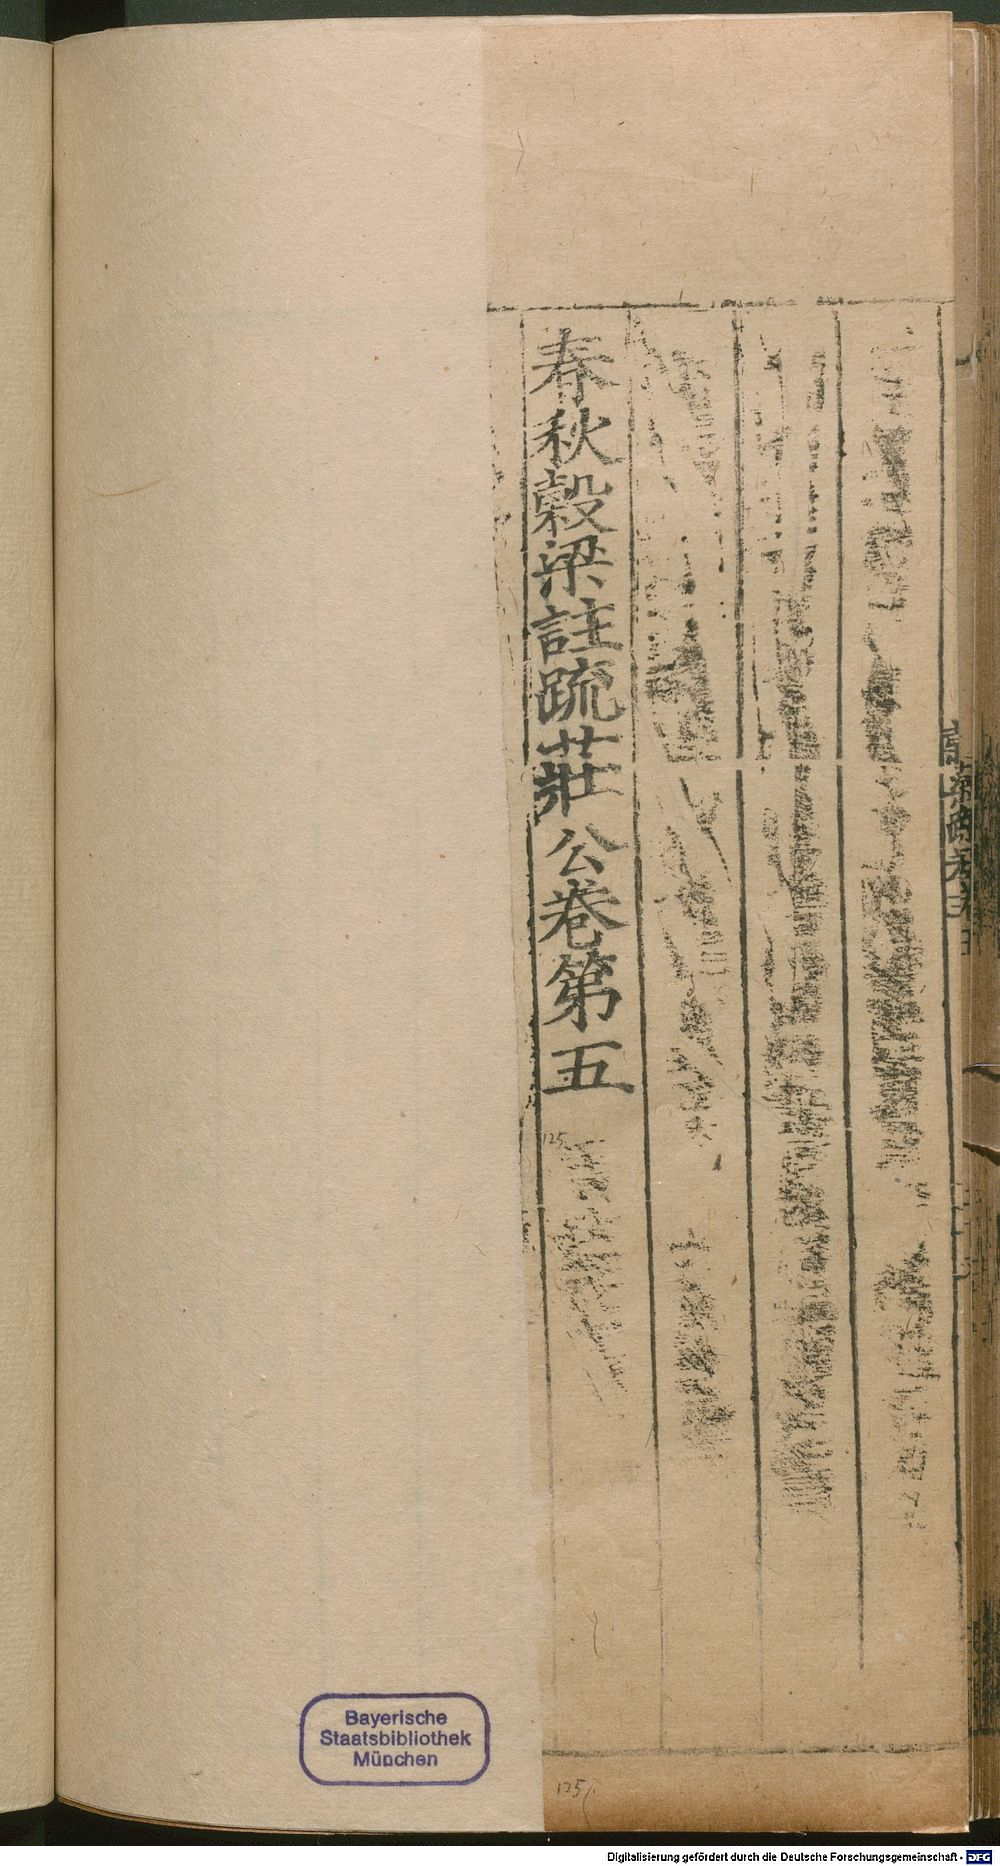 春秋穀梁註疏莊公卷第五
125
125
Bayerische
Staatsbibliothek
München
Digitalisierung gefördert durch die Deutsche Forschungsgemeinschaft - DFG